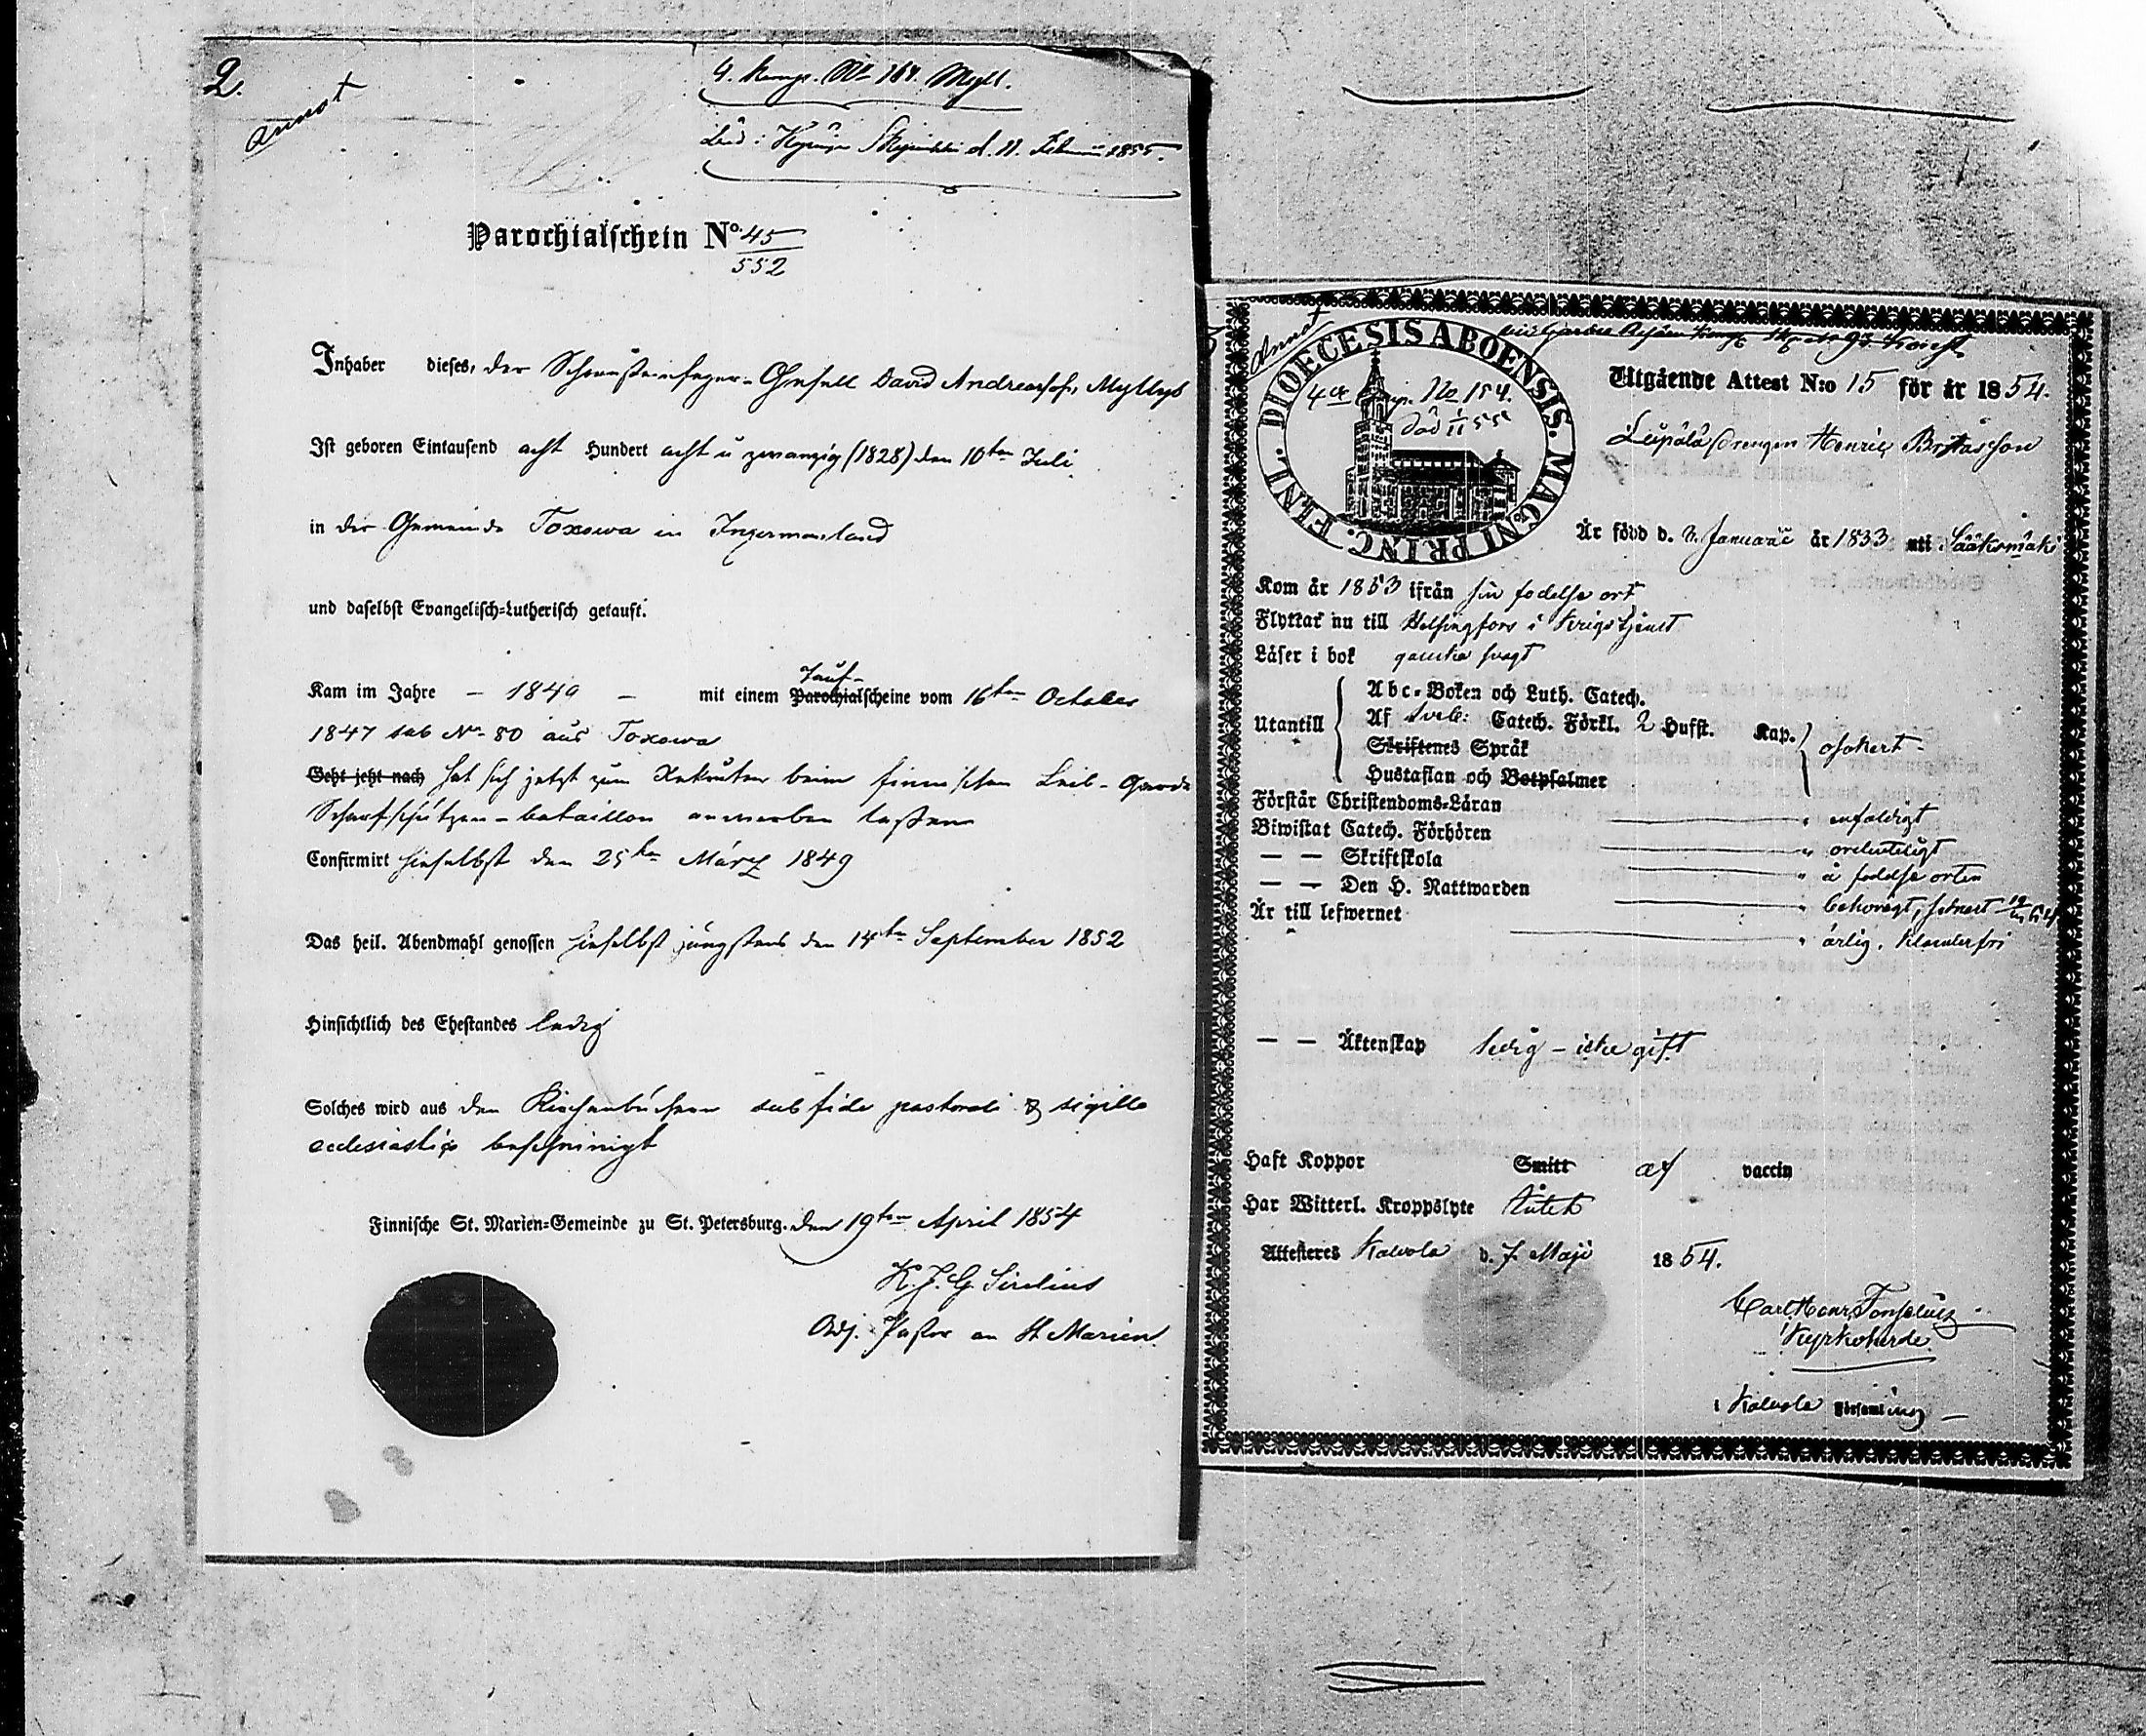 2.
Annot
4. Komp. No 164. Myll.
Död i d. 11. Februari 1855.
Parochialschein No. 45
552
Inhaber dieses, der Schornsteinfeger-Gesell David Andreassohn Myllys
Ist geboren Eintausend acht Hundert acht u zwanzig (1828) den 10ten Juli
in der Gemeinde Toxowa in Ingermanland
und daselbst Evangelisch-Lutherisch getauft.
Kam im Jahre – 1849 – mit einem Parochialscheine vom 16ten October
Tauf-
1847 sub No. 80 aus Toxowa
Geht jetzt nach hat sich jetzt zum Rekruten beim finnischen Leib-Garde
Scharfschützen-bataillon anwerben lassen
Confirmirt hieselbst den 25ten März 1849
Das heil. Abendmahl genossen hieselbst jüngstens den 14ten September 1852
Hinsichtlich des Ehestandes ledig
Solches wird aus den Kirchenbüchern sub fide pastorali & sigillo
ecclesiastico bescheinigt
Finnische St. Marien-Gemeinde zu St. Petersburg. den 19ten April 1854
K. J. G. Sirelius
Adj. Pastor an St Marien.
Annot
DIOECESIS ABOENSIS. MAGNI PRINC. FINL.
4de Komp. No 154.
Död
Utgående Attest N:o 15 för år 1854.
Drengen Henric
Är född d. 3. Januarii år 1833 uti Sääksmäki
Kom år 1853 ifrån sin födelse ort
Flyttar nu till Helsingfors i Krigstjenst
Läser i bok ganska svagt
Utantill
Abc-Boken och Luth. Catech.
Af Sveb: Catech. Förkl. 2 Hufst. Kap.
Skriftenes Språk
Hustaflan och Botpsalmer
osäkert –
Förstår Christendoms-Läran " enfaldigt
Biwistat Catech. Förhören " ordenteligt
— — Skriftskola " å födelse orten
— — Den H. Nattwarden " behörigt, senast
Är till lefwernet " ärlig, klanderfri
— — Äktenskap ledig – icke gift
Haft Koppor Smitt af vaccin
Har Witterl. Kroppslyte
Attesteres Kalvola d. 7. Maji 1854.
Carl Henr.
Kyrkoherde
i Kalvola Församling –